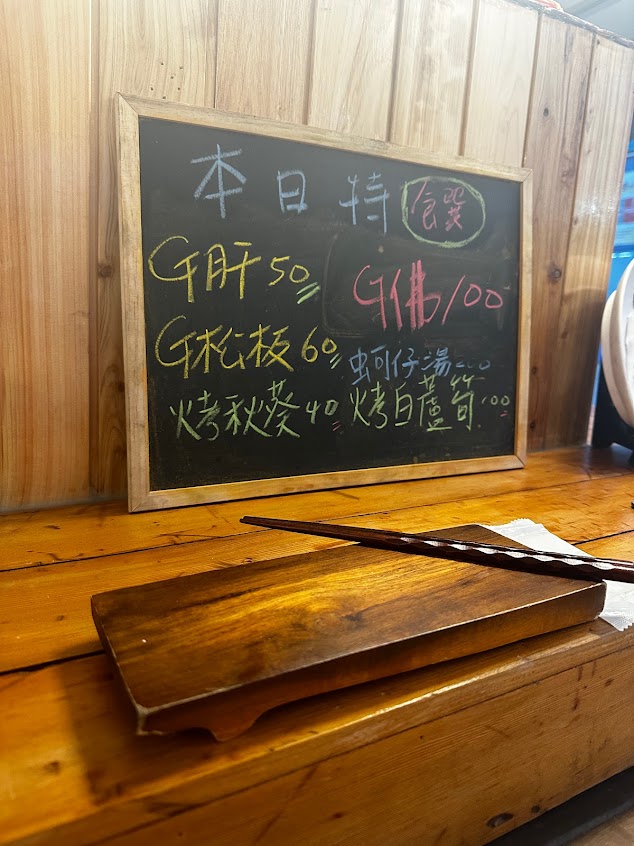 本日特饌
G肝 50 G佛 100
G松板 60 蚵仔湯
烤秋葵 40 烤白蘆筍 100